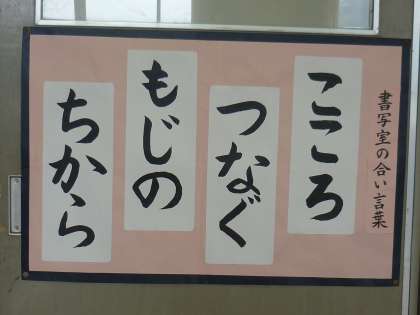 書写室の合い言葉
こころ
つなぐ
もじの
ちから